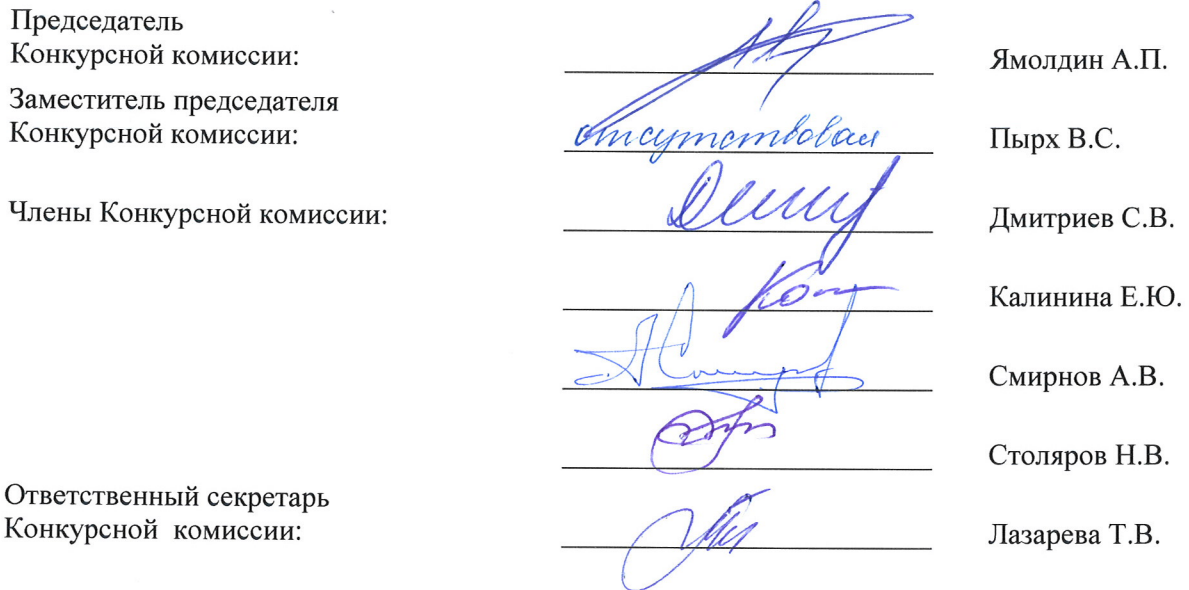 Председатель
Конкурсной комиссии: Ямолдин А.П.
Заместитель председателя
Конкурсной комиссии: отсутствовал Пырх В.С.
Члены Конкурсной комиссии: Дмитриев С.В.
Калинина Е.Ю.
Смирнов А.В.
Столяров Н.В.
Ответственный секретарь
Конкурсной комиссии: Лазарева Т.В.